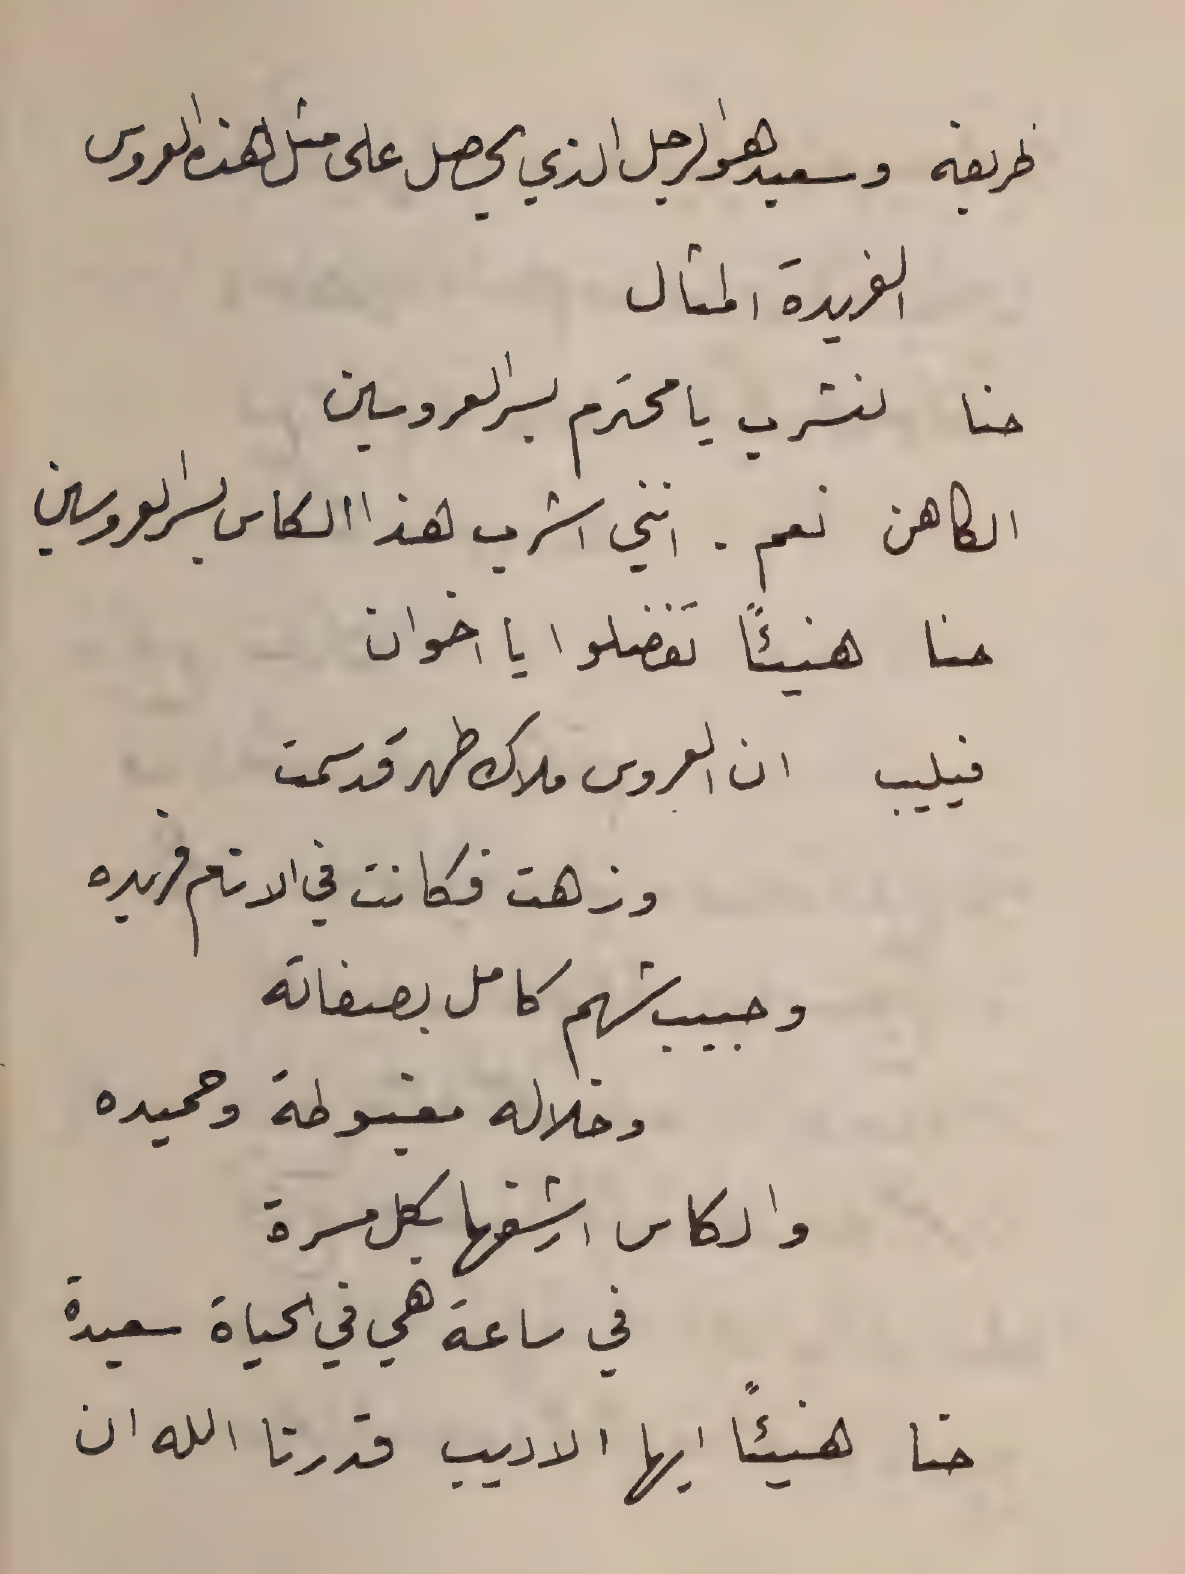 ظريفه وسعيد هو الرجل الذي يحصل على مثل هذه العروس
الفريدة المثال
حنا لنشرب يا محترم بسر العروسين
الكاهن نعم . انني اشرب هذا الكاس بسر العروسين
حنا هنيئًا تفضلوا يا اخوان
فيليب ان العروس ملاك طهر قد سمت
وزهت فكانت في الانام فريده
وحبيب شهم كامل بصفاته
وخلاله مغبوطة وحميده
والكاس ارشفها بكل مسرة
في ساعة هي في الحياة سعيدة
حنا هنيئًا ايها الاديب قدرنا الله ان